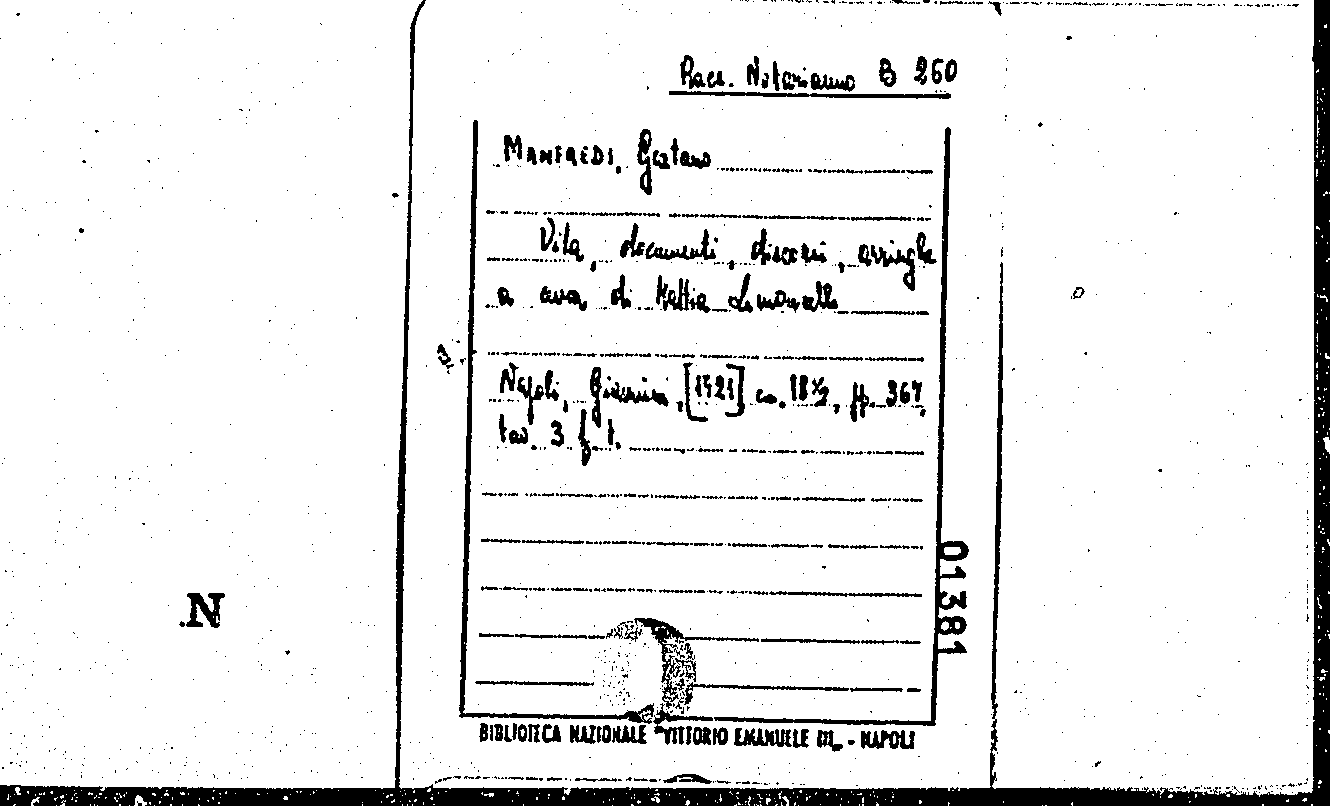 Racc. Notarianno B 260
MANFREDI, Gaetano
Vita, documenti, discorsi, arringhe
a cura di Mattia Limoncelli
Napoli, Giannini, [1921] cm. 18½, pp. 367,
tav. 3 f. t.
01381
.N
BIBLIOTECA NAZIONALE "VITTORIO EMANUELE III„ - NAPOLI